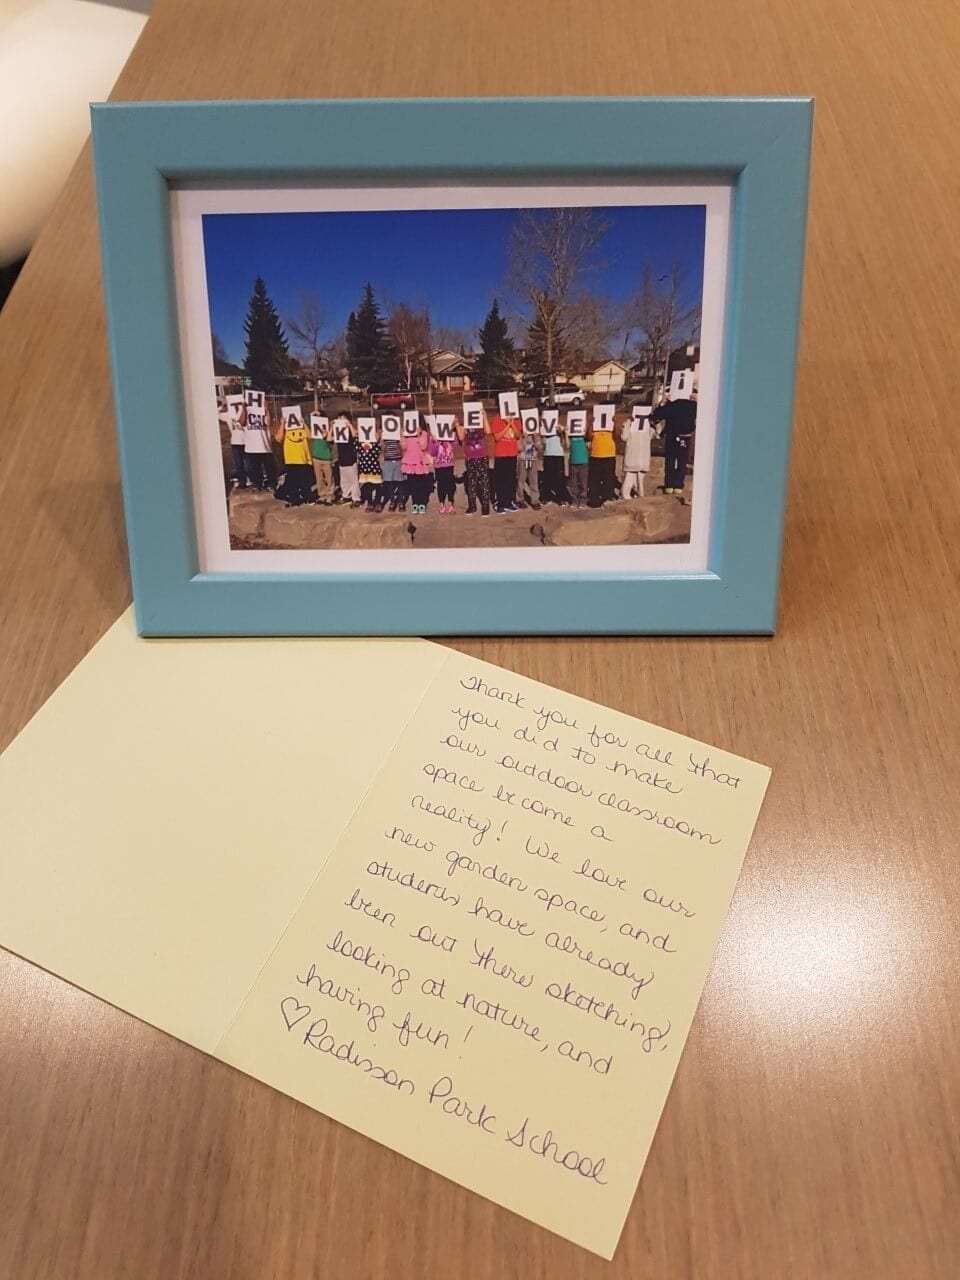 THANK YOU WE LOVE IT !
Thank you for all that
you did to make
our outdoor classroom
space become a
reality! We love our
new garden space, and
students have already
been out there sketching,
looking at nature, and
having fun!
♡Radisson Park School